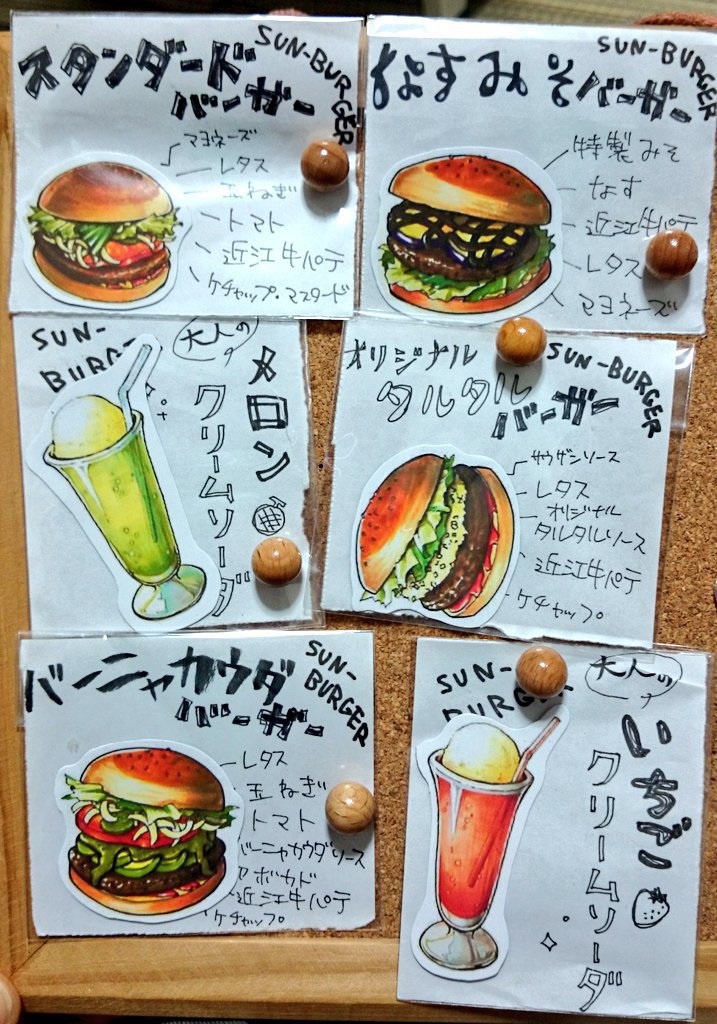 スタンダード
バーガー
SUN-BURGER
マヨネーズ
レタス
玉ねぎ
トマト
近江牛パテ
ケチャップ・マスタード
なすみそバーガー
SUN-BURGER
特製みそ
なす
近江牛パテ
レタス
マヨネーズ
SUN-
BURGE
大人の
メロン
クリームソーダ
オリジナル
タルタル
バーガー
SUN-BURGER
サウザンソース
レタス
オリジナル
タルタルソース
近江牛パテ
ケチャップ
バーニャカウダ
バーガー
SUN-
BURGER
レタス
玉ねぎ
トマト
バーニャカウダソース
アボカド
近江牛パテ
ケチャップ
SUN-
大人の
いちご
クリームソーダ